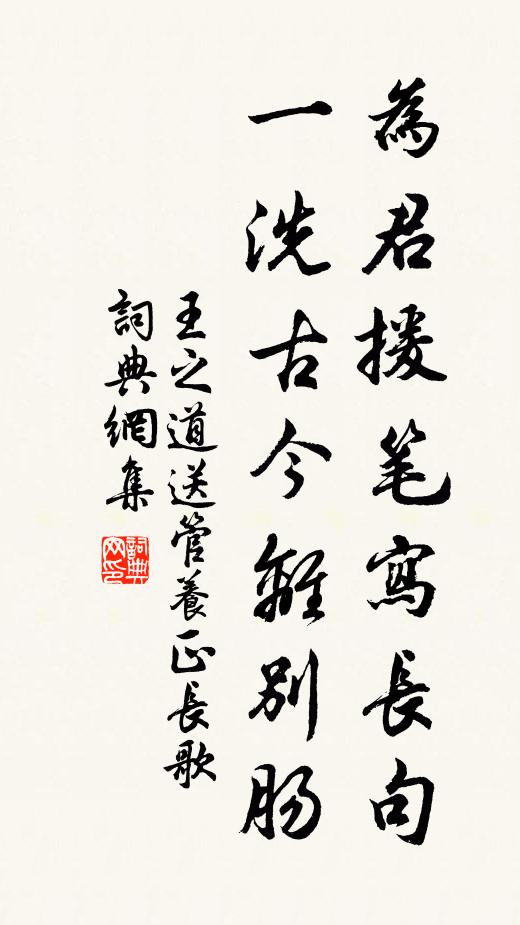 為君援笔寫長句
一洗古今離別肠
王之道送管養正長歌
詞典網集
詞典
网印